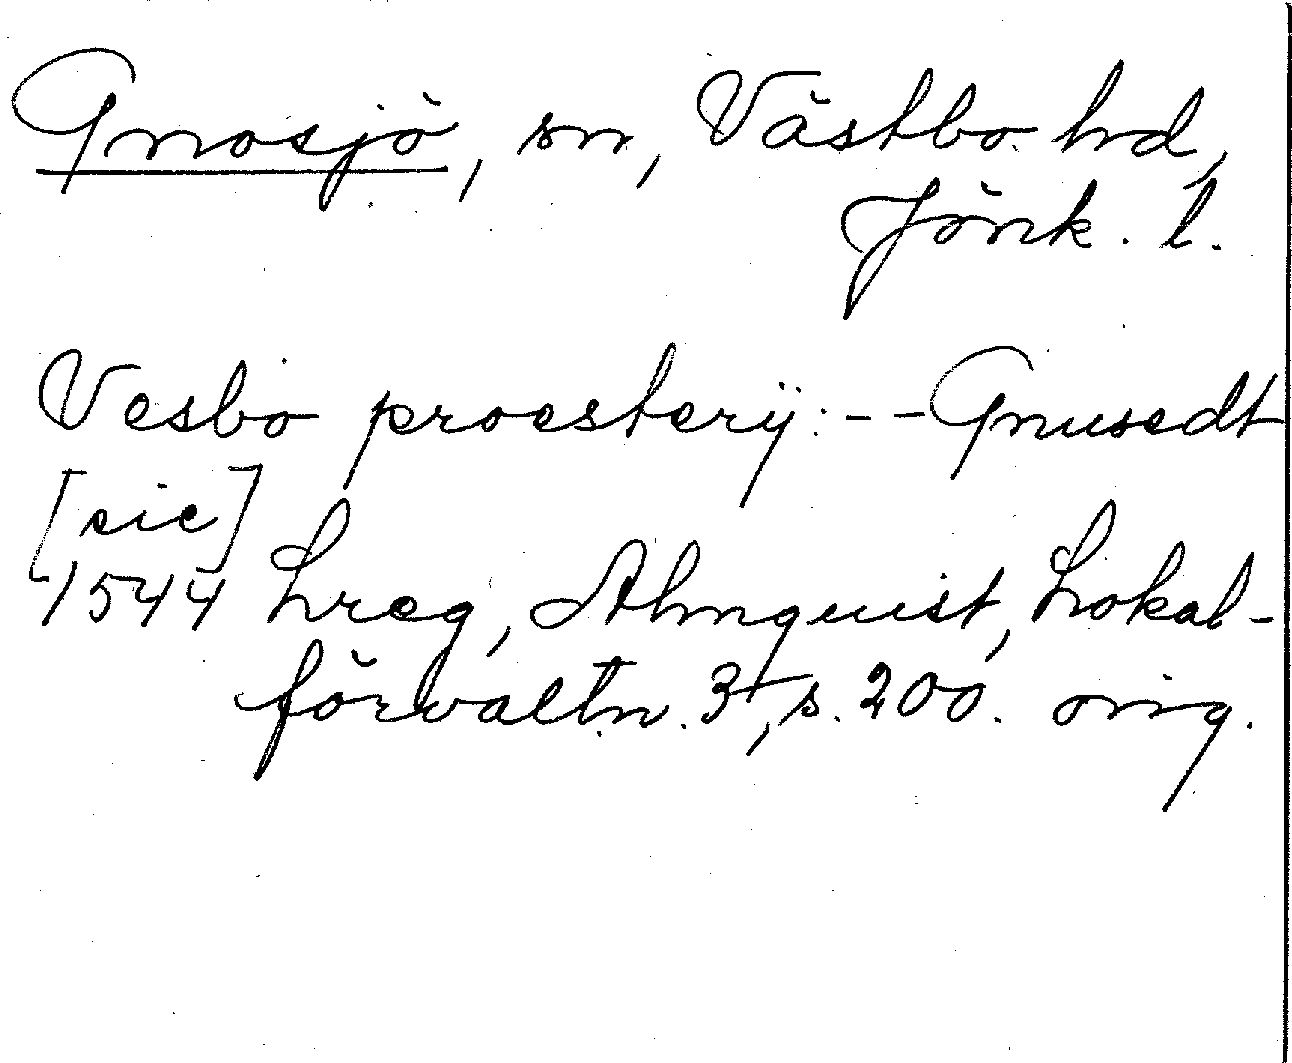 Gnosjö, sn, Västbo hd,
Jönk. l.
Vesbo proesterÿ: -- Gnusedt
[sic]
1544 Lreg, Almquist, Lokal-
förvaltn. 3, s. 200. orig.